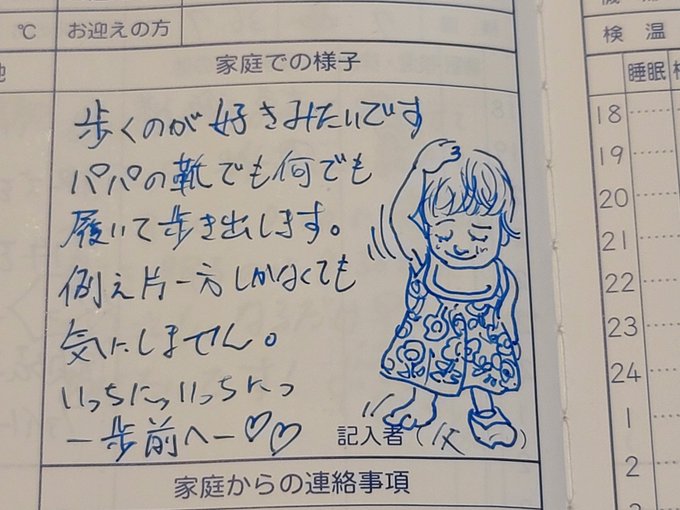 ℃
お迎えの方
検 温
家庭での様子
睡眠
歩くのが好きみたいです
パパの靴でも何でも
履いて歩き出します。
例え片一方しかなくても
気にしません。
いっちにっいっちにっ
一歩前へー♡♡
記入者（父）
家庭からの連絡事項
18
19
20
21
22
23
24
1
2